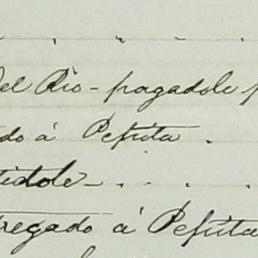 del Rio - pagadole p
do á Pepita .
tidole - . . .
tregado a' Pepita